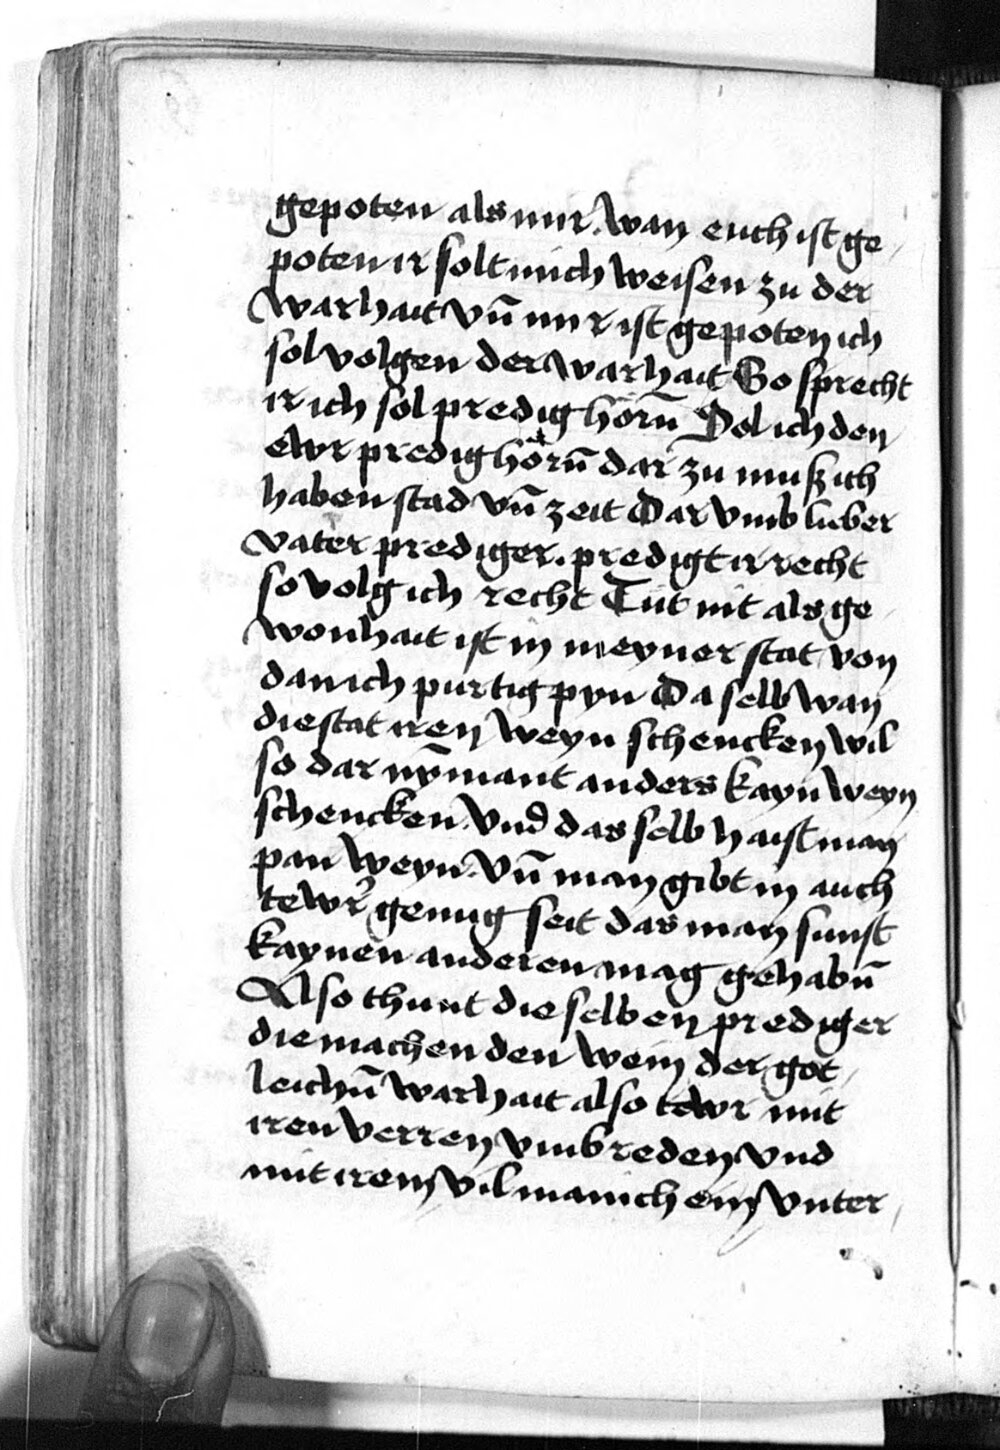 gepoten als mir. wan euch ist ge
poten ir solt mich weisen zu der
warhait vn̄ mir ist gepoten ich
sol volgen der warhait So sprecht
ir ich sol predig hörn̄ Sol ich den
ewr predig hörn̄ dar zu muß ich
haben stad vn̄ zeit Dar vmb lieber
vater prediger. predigt ir recht
so volg ich recht Tüt nit als ge
wonhait ist in meyner stat von
dan ich purtig pyn Da selb wan
die stat iren weyn schencken wil
so dar nymant anders kayn weyn
schencken. Vnd das selb haist man
pan weyn. vn̄ man gibt in auch
tewr genug seit das man sunst
kaynen anderen mag gehabn̄
Also thunt die selben prediger
die machen den wein der göt
leichn̄ warhait also tewr mit
iren verren vmbreden vnd
mit irem vil manichem vnter